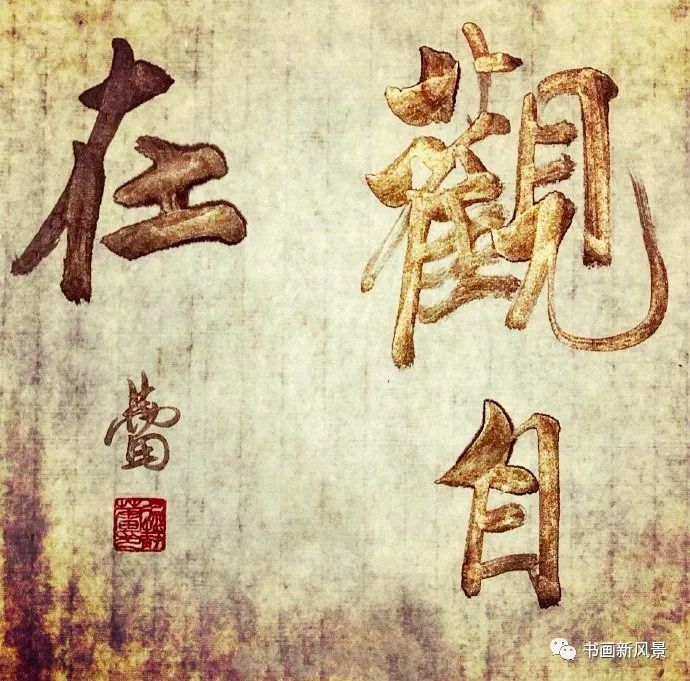 觀自
在
书画新风景